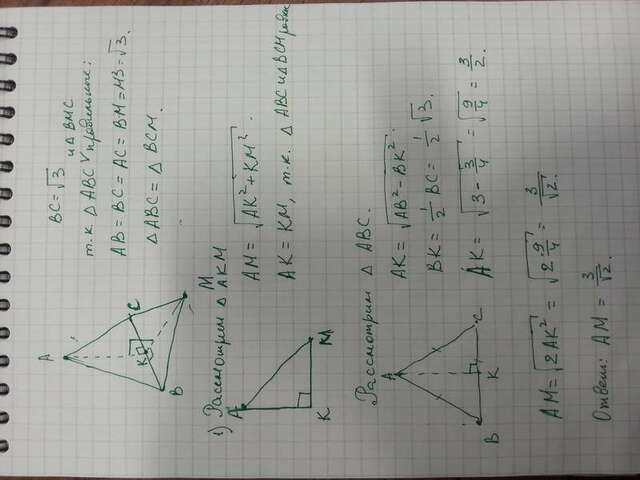 BC = √3
т.к. △ABC и △BMC правильные:
AB = BC = AC = BM = MC = √3.
△ABC = △BCM.
A
C
K
B
M
1) Рассмотрим △AKM
AM = √(AK² + KM²).
AK = KM, т.к. △ABC и △BCM равны
A
K
M
Рассмотрим △ABC.
AK = √(AB² - BK²).
BK = 1/2 BC = 1/2 √3.
AK = √(3 - 3/4) = √(9/4) = 3/2.
A
B
K
C
AM = √(2AK²) = √(2·9/4) = 3/√2.
Ответ: AM = 3/√2